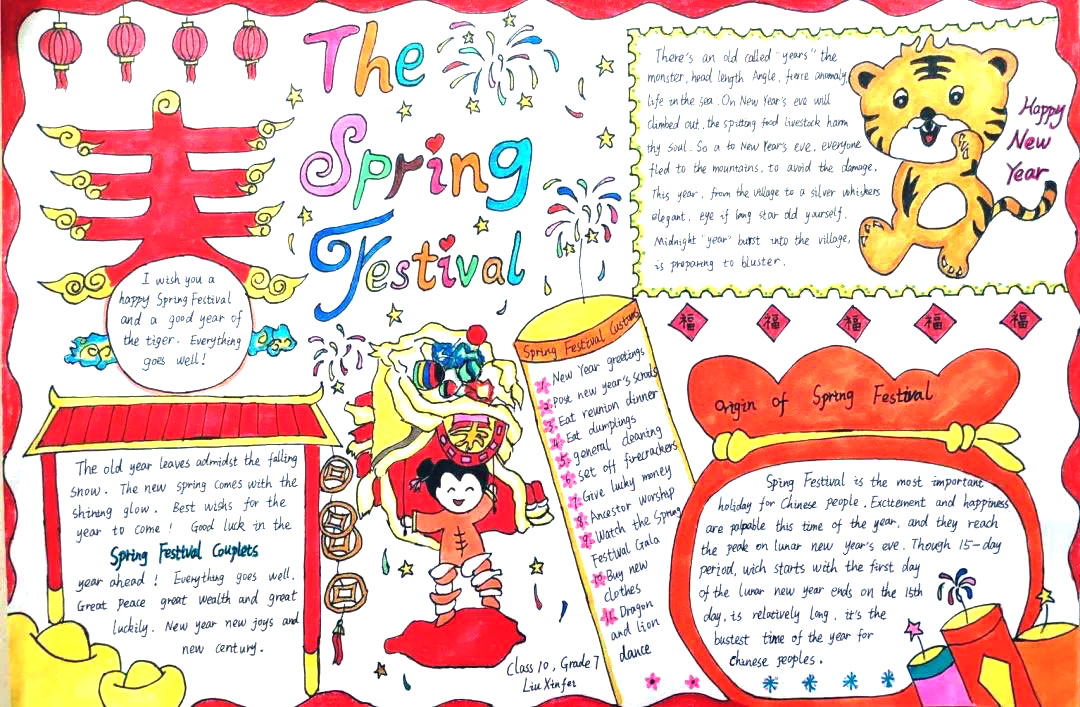 The
Spring
Festival
春
I wish you a
happy Spring Festival
and a good year of
the tiger. Everything
goes well!
There's an old called "years" the
monster, head length Angle, fierce anomaly
life in the sea. On New Year's eve will
clambed out, the spitting food livestock harm
thy soul. So a to New Year's eve, everyone
fled to the mountains, to avoid the damage.
This year, from the village to a silver whiskers
elegant, eye if long star old yourself.
Midnight "year" burst into the village,
is preparing to bluster.
Happy
New
Year
福 福 福 福 福
The old year leaves admidst the falling
snow. The new spring comes with the
shining glow. Best wishes for the
year to come! Good luck in the
Spring Festival Couplets
year ahead! Everything goes well.
Great peace great wealth and great
luckily. New year new joys and
new century.
Spring Festival Customs
1. New Year greetings
2. Post new year's scrolls
3. Eat reunion dinner
4. Eat dumplings
5. general cleaning
6. Set off firecrackers
7. Give lucky money
8. Ancestor worship
9. Watch the Spring
Festival Gala
10. Buy new
clothes
11. Dragon
and lion
dance
Class 10, Grade 7
Liu Xinfer
Origin of Spring Festival
Sping Festival is the most important
holiday for Chinese people. Excitement and happiness
are palpable this time of the year, and they reach
the peak on lunar new year's eve. Though 15-day
period, wich starts with the first day
of the lunar new year ends on the 15th
day, is relatively long, it's the
bustest time of the year for
Chinese peoples.